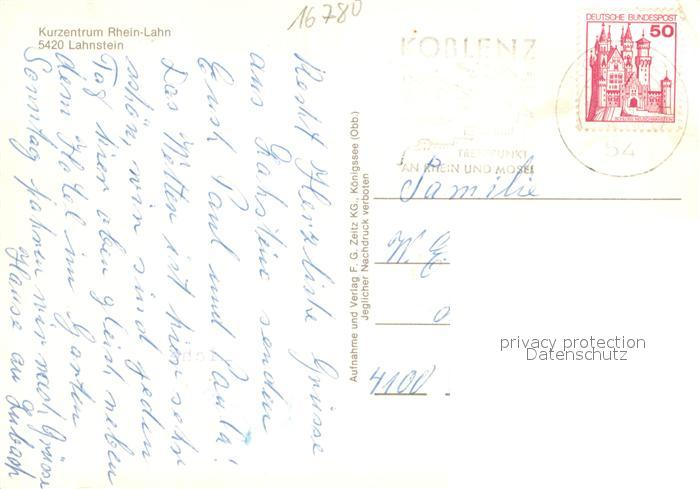 16780
Kurzentrum Rhein-Lahn
5420 Lahnstein
Recht Herzliche Grüsse
aus Lahnstein senden
Ernst Paul und Paula!
Das Wetter ist hier sehr
schön, wir sind jeden
Tag hier oben gleich neben
dem Hotel im Garten
Sonntag fahren wir nach
Hause
Grüsse
an
Aufnahme und Verlag F. G. Zeitz KG., Königssee (Obb.)
Jeglicher Nachdruck verboten
KOBLENZ
TREFFPUNKT
AN RHEIN UND MOSEL
54
DEUTSCHE BUNDESPOST
50
Familie
W. G
4100
privacy protection
Datenschutz